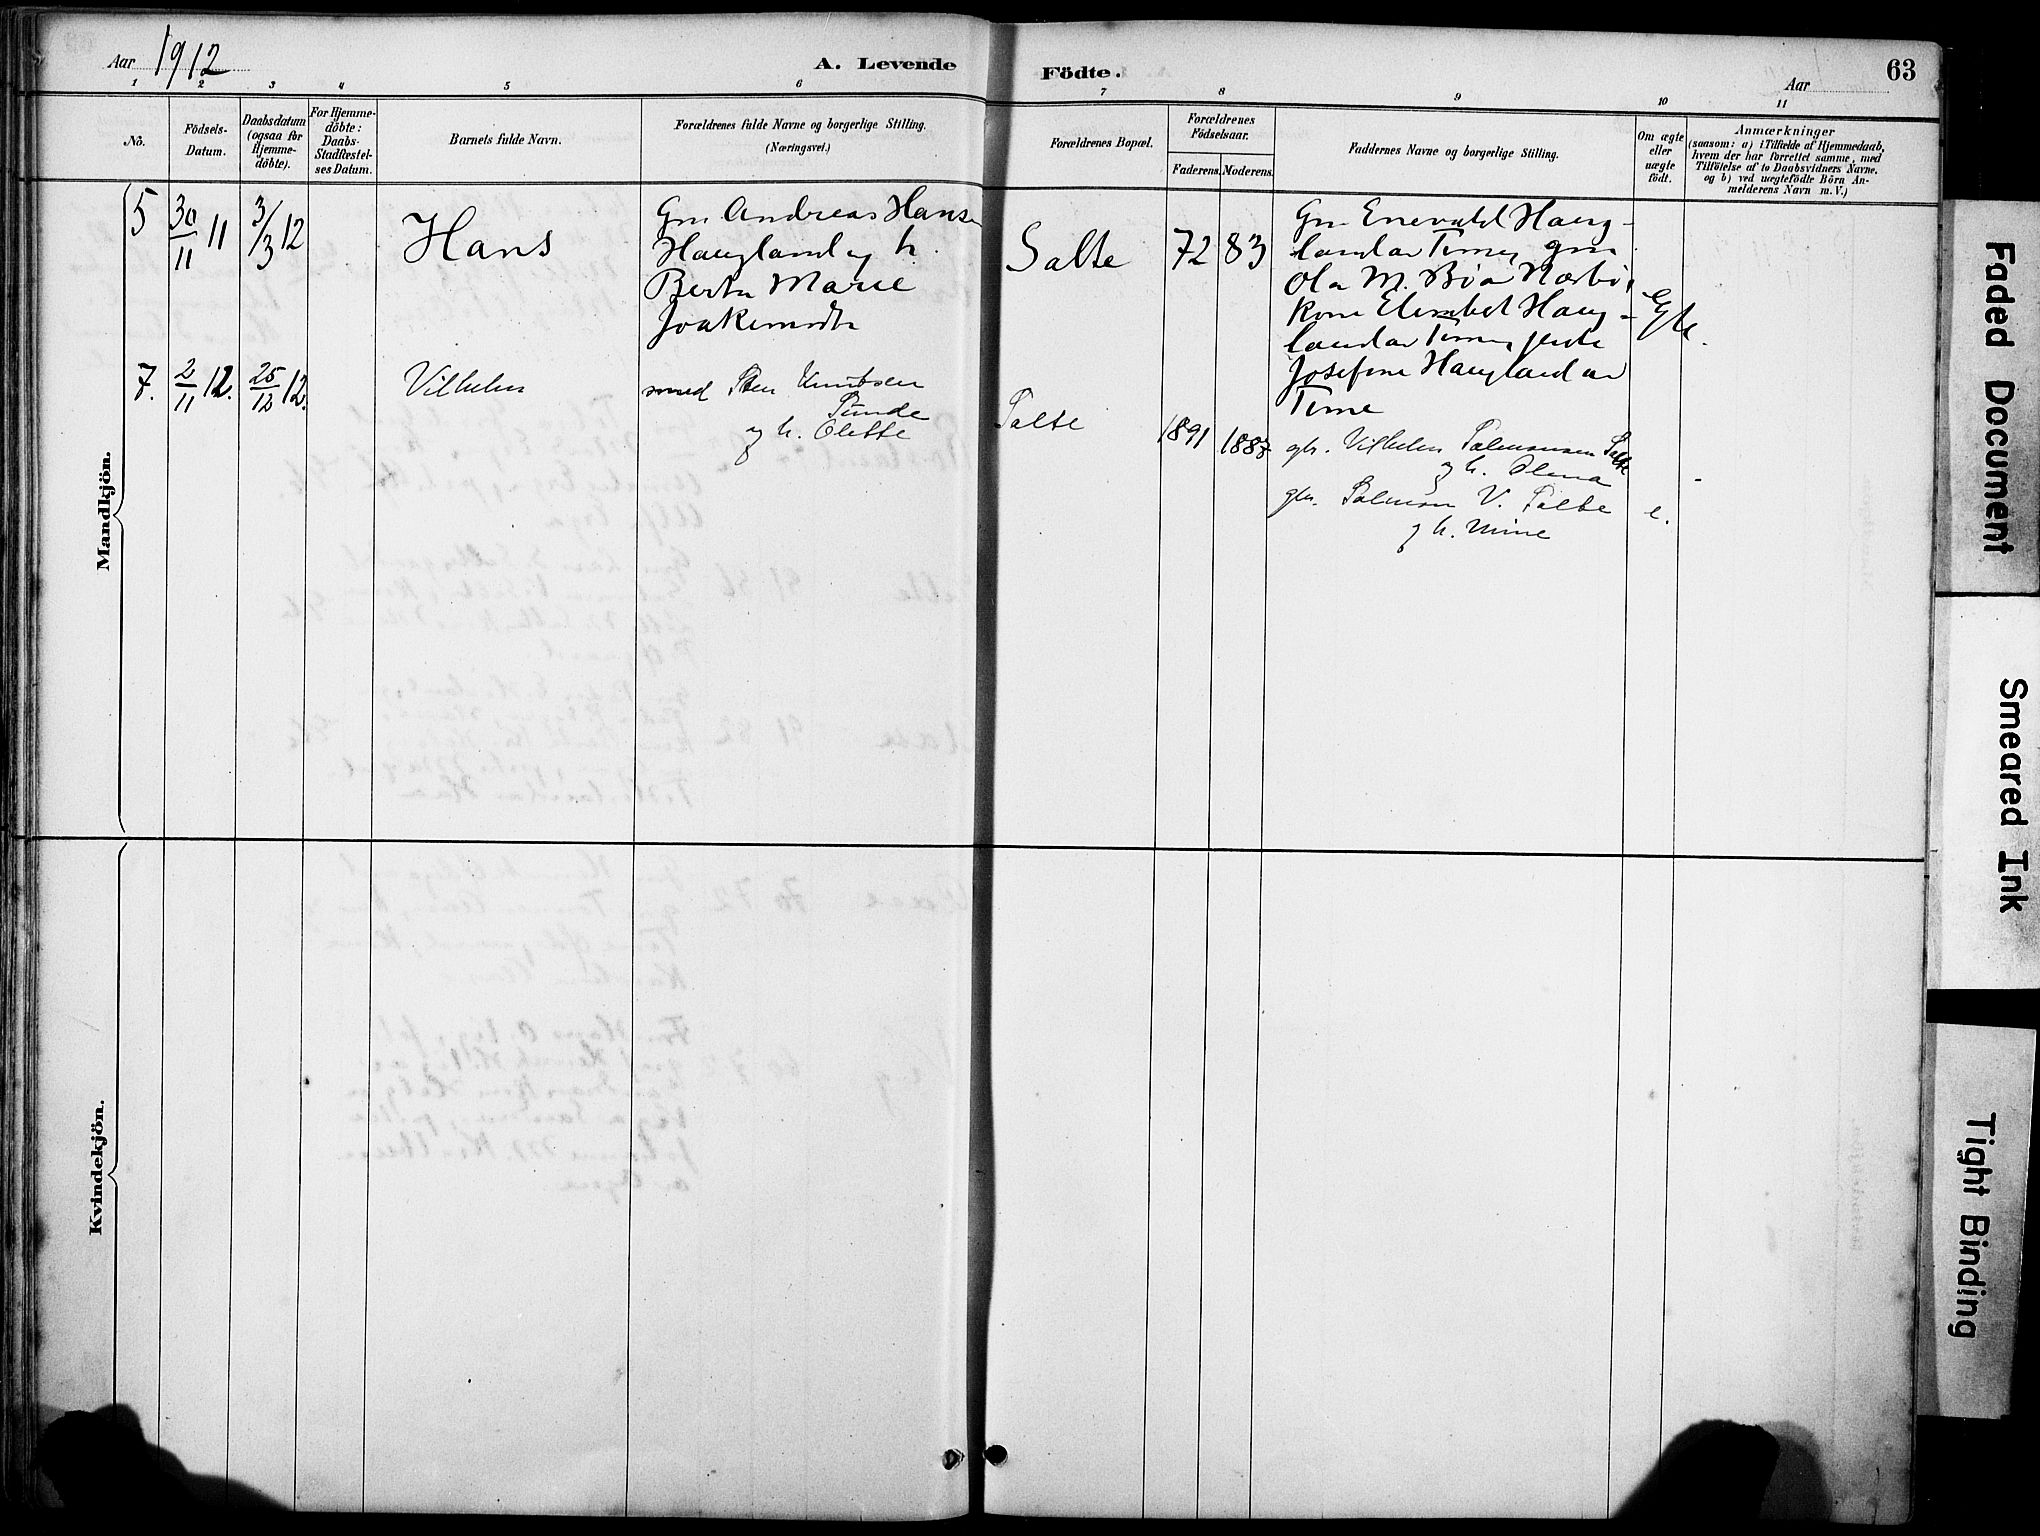 Aar 1912
A. Levende
Födte.
Aar
63
1 2 3 4 5 6 7 8 9 10 11
No.
Födsels-
Datum.
Daabsdatum
(ogsaa for
Hjemme-
döbte).
For Hjemme-
döbte:
Daabs-
Stadfestel-
ses Datum.
Barnets fulde Navn.
Forældrenes fulde Navne og borgerlige Stilling.
(Næringsvei.)
Forældrenes Bopæl.
Forældrenes
Födselsaar.
Faderens. Moderens.
Faddernes Navne og borgerlige Stilling.
Om ægte
eller
uægte
födt.
Anmærkninger
(saasom: a) i Tilfælde af Hjemmedaab,
hvem der har forrettet samme, med
Tilföielse af to Daabsvidners Navne.
og b) ved uægtefödte Börn An-
melderens Navn m. V.)
Mandkjön.
5
30/11 11
3/3 12
Hans
Gm Andreas Hansen
Haugland og h.
Berta Marie
Joakimsdtr
Salte
72 83
Gm Enevald Haug-
land av Time, gm
Ola M. Bø av Nærbø,
kone Elisabet Haug-
land av Time, pike
Josefine Haugland av
Time
Egte.
7.
2/11 12.
25/12 12.
Vilhelm
smed Sten Knutsen
Sunde
og h. Olette
Salte
1891 1887
gbr. Vilhelm Salmonsen Salte
og h. Olena
gbr. Salmon V. Salte
og h. Mine
e.
Kvindekjön.
Faded Document
Smeared Ink
Tight Binding